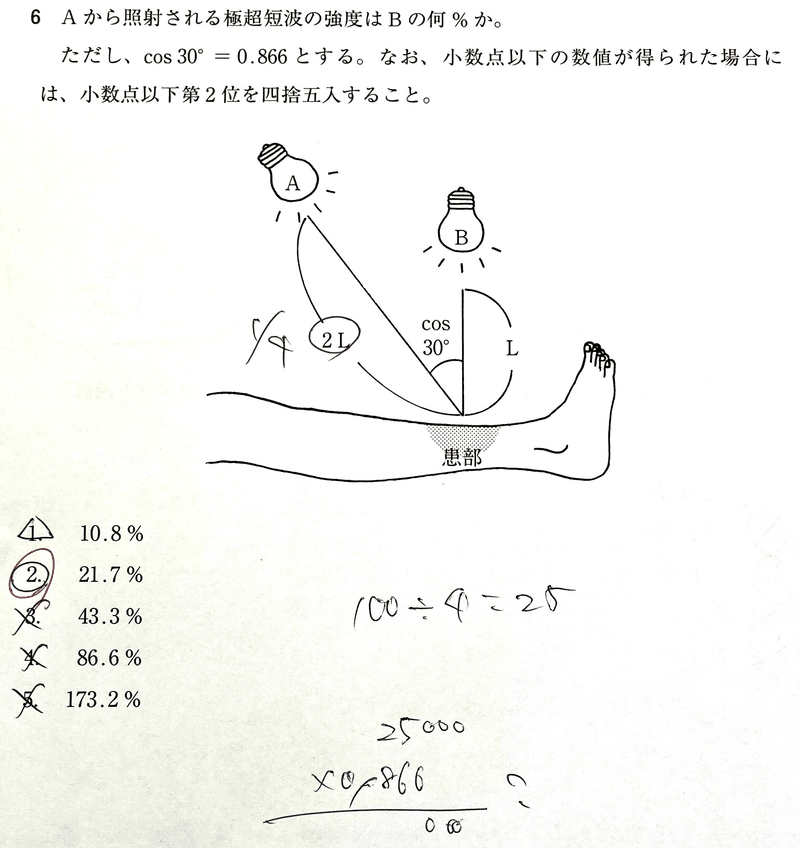 6 Aから照射される極超短波の強度はBの何%か。
ただし、cos 30° = 0.866とする。なお、小数点以下の数値が得られた場合に
は、小数点以下第2位を四捨五入すること。
A
B
1/4
2L
cos
30°
L
患部
1. 10.8%
2. 21.7%
3. 43.3%
4. 86.6%
5. 173.2%
100÷4=25
25000
×0.866
?